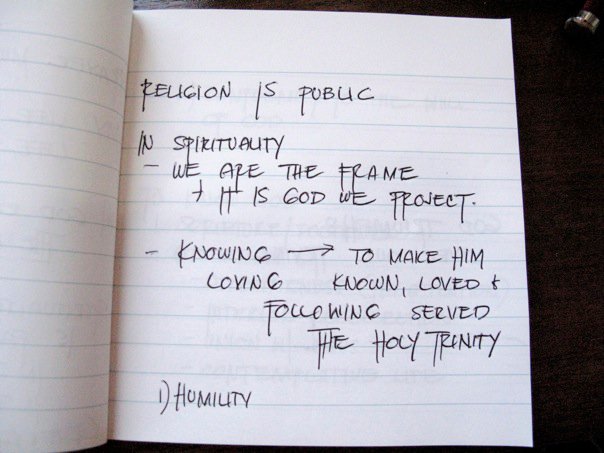 RELIGION IS PUBLIC
IN SPIRITUALITY
- WE ARE THE FRAME
+ IT IS GOD WE PROJECT.
- KNOWING → TO MAKE HIM
LOVING KNOWN, LOVED &
FOLLOWING SERVED
THE HOLY TRINITY
1) HUMILITY